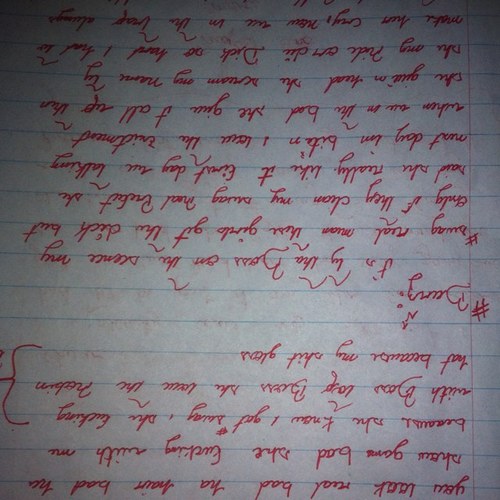 you look real bad hair bad
shaw gone bad she fucking with me
because she know i got swag, she fucking
with Boss she love the
hot because my shit gloss
#
by tha Boss on the science my
* swag real man girls got the dick but
only if they clean my swag Mad Perfect she
said she really like it first day we talking
next day im i love the
when we in the bed she give it all up then
she head she scream my name by
she my Ride or die Dick so hard i had to
make her cry, now we in the always